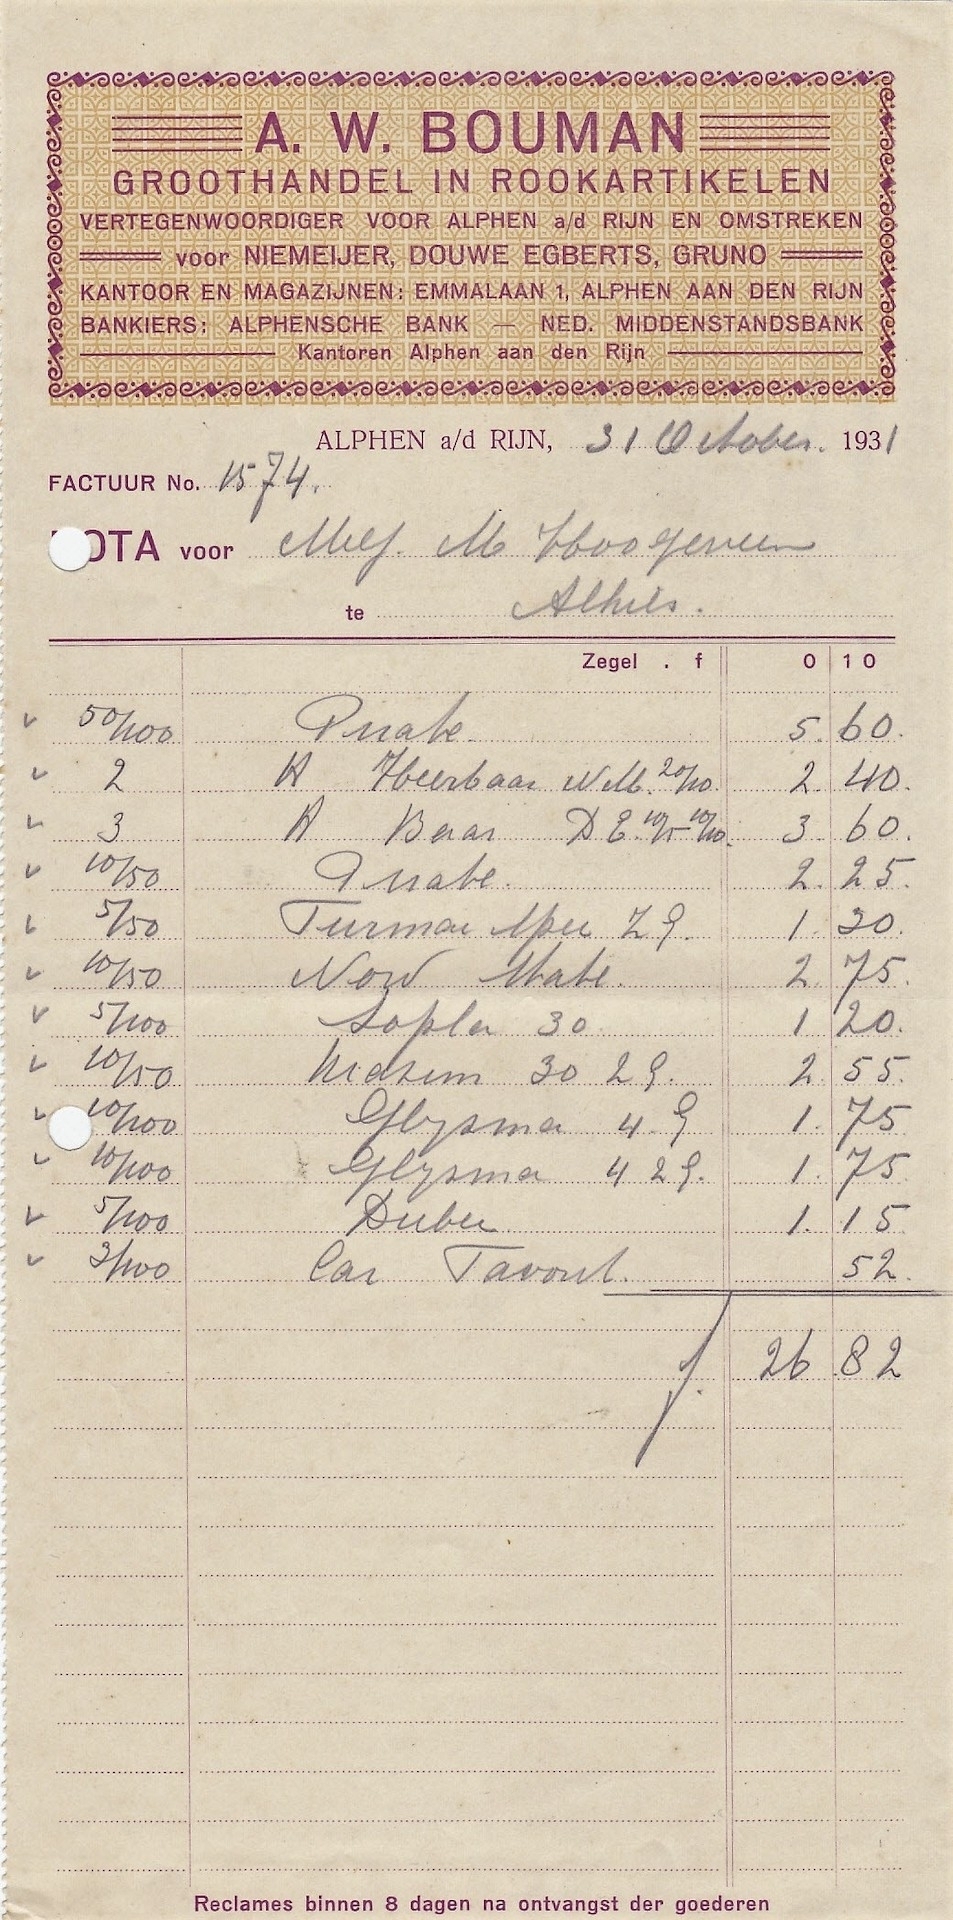 A. W. BOUMAN
GROOTHANDEL IN ROOKARTIKELEN
VERTEGENWOORDIGER VOOR ALPHEN a/d RIJN EN OMSTREKEN
voor NIEMEIJER, DOUWE EGBERTS, GRUNO
KANTOOR EN MAGAZIJNEN: EMMALAAN 1, ALPHEN AAN DEN RIJN
BANKIERS: ALPHENSCHE BANK — NED. MIDDENSTANDSBANK
Kantoren Alphen aan den Rijn
ALPHEN a/d RIJN, 31 October. 1931
FACTUUR No. 1574.
OTA voor Mej. M Hoogeveen
te
Zegel . f 0 10
50/100 5. 60.
2 H 20/10. 2. 40.
3 H Baai D E 3. 60.
10/50 2. 25.
5/50 Turmac 1. 30.
10/50 2. 75.
5/100 30 1 20.
10/50 30 2 2. 55.
10/100 Glysma 4 1. 75
10/100 Glysma 4 2 1. 75
5/100 1. 15
3/100 52.
f. 26 82
Reclames binnen 8 dagen na ontvangst der goederen